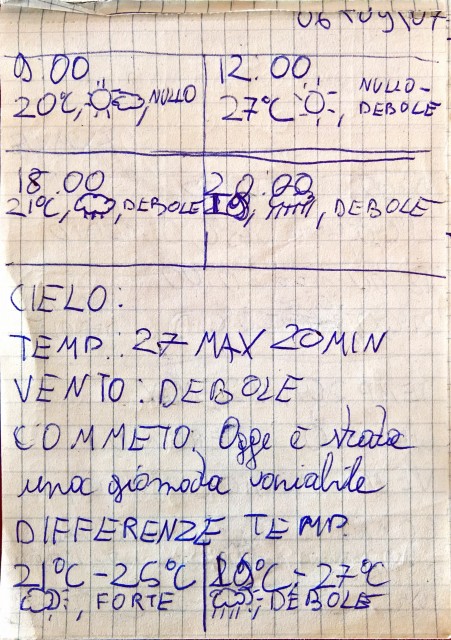 9:00 12.00
20°C, NULLO 27°C, NULLO-
DEBOLE
18.00 20:00
21°C, DEBOLE 19, DEBOLE
CIELO:
TEMP.: 27 MAX 20 MIN
VENTO: DEBOLE
COMMETO: Oggi è stata
una giornata variabile
DIFFERENZE TEMP.
21°C-26°C 19°C-27°C
, FORTE , DEBOLE